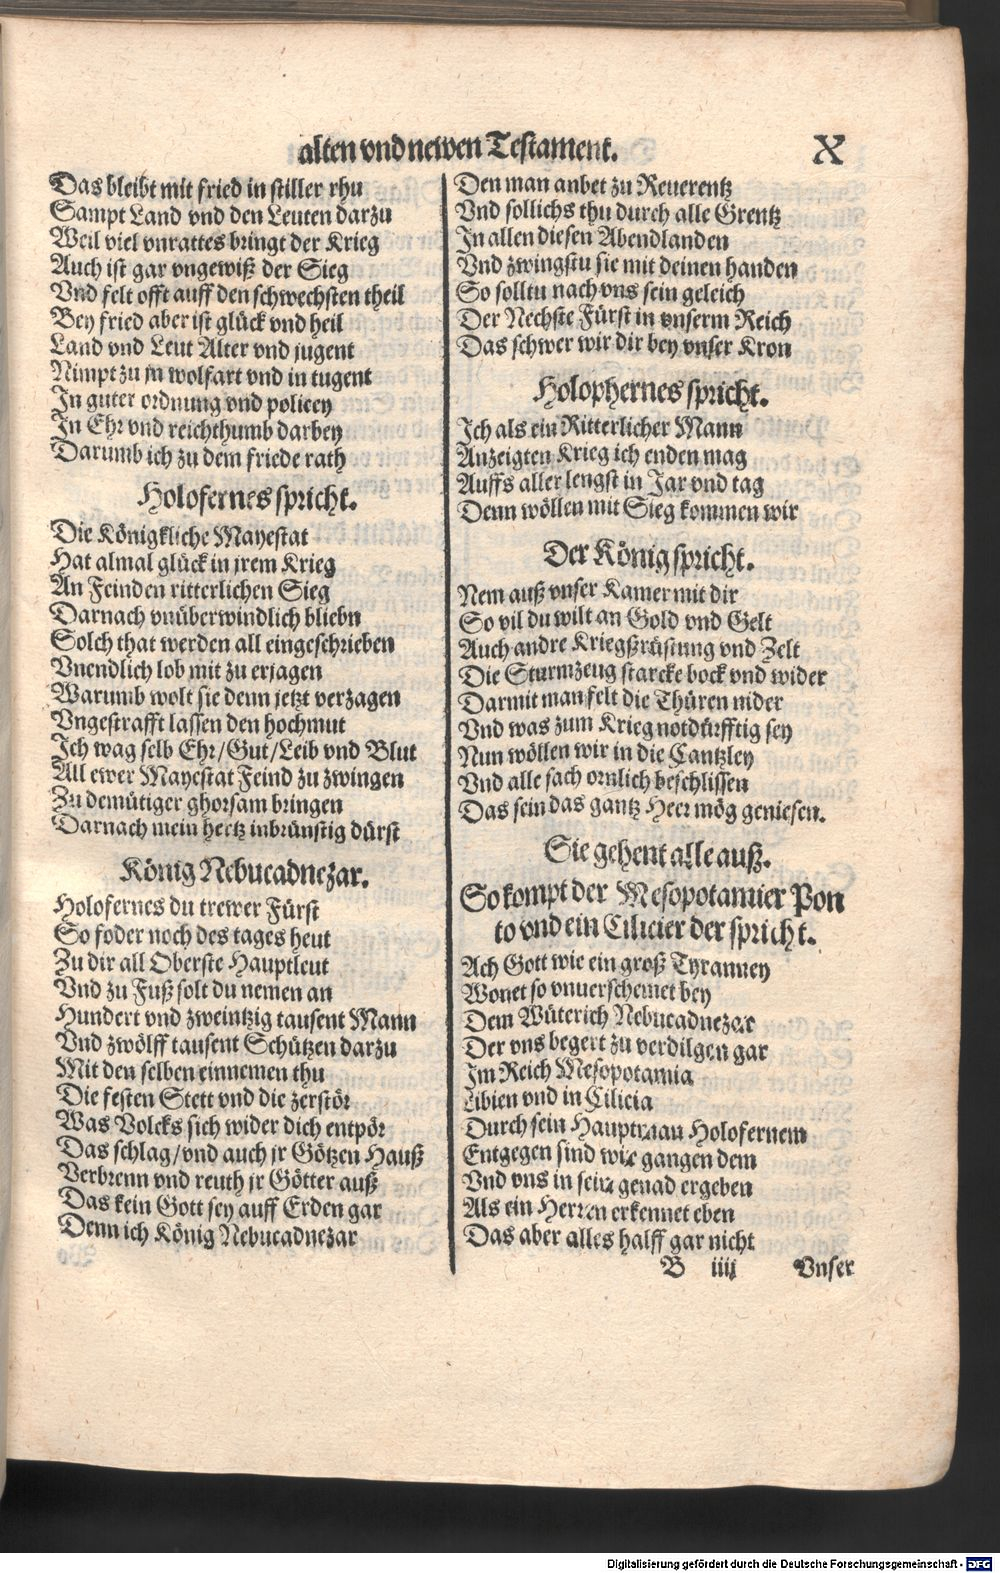 alten vnd newen Testament. X
Das bleibt mit fried in stiller rhu
Sampt Land vnd den Leuten darzu
Weil viel vnrattes bringt der Krieg
Auch ist gar vngewiß der Sieg
Vnd felt offt auff den schwechsten theil
Bey fried aber ist glück vnd heil
Land vnd Leut Alter vnd jugent
Nimpt zu in wolfart vnd in tugent
In guter ordnung vnd policey
In Ehr vnd reichthumb darbey
Darumb ich zu dem friede rath
Holofernes spricht.
Die Königkliche Mayestat
Hat almal glück in jrem Krieg
An Feinden ritterlichen Sieg
Darnach vnüberwindlich bliebn
Solch that werden all eingeschrieben
Vnendlich lob mit zu erjagen
Warumb wolt sie denn jetzt verzagen
Vngestrafft lassen den hochmut
Ich wag selb Ehr/Gut/Leib vnd Blut
All ewer Mayestat Feind zu zwingen
Zu demütiger ghorsam bringen
Darnach mein hertz inbrünstig dürst
König Nebucadnezar.
Holofernes du trewer Fürst
So foder noch des tages heut
Zu dir all Oberste Hauptleut
Vnd zu Fuß solt du nemen an
Hundert vnd zweintzig tausent Mann
Vnd zwölff tausent Schützen darzu
Mit den selben einnemen thu
Die festen Stett vnd die zerstör
Was Volcks sich wider dich entpör
Das schlag/vnd auch jr Götzen Hauß
Verbrenn vnd reuth jr Götter auß
Das kein Gott sey auff Erden gar
Denn ich König Nebucadnezar
Den man anbet zu Reuerentz
Vnd sollichs thu durch alle Grentz
In allen diesen Abendlanden
Vnd zwingstu sie mit deinen handen
So solltu nach vns sein geleich
Der Nechste Fürst in vnserm Reich
Das schwer wir dir bey vnser Kron
Holophernes spricht.
Ich als ein Ritterlicher Mann
Anzeigten Krieg ich enden mag
Auffs aller lengst in Jar vnd tag
Denn wöllen mit Sieg kommen wir
Der König spricht.
Nem auß vnser Kamer mit dir
So vil du wilt an Gold vnd Gelt
Auch andre Kriegßrüstung vnd Zelt
Die Sturmzeug starcke bock vnd wider
Darmit man felt die Thüren nider
Vnd was zum Krieg notdürfftig sey
Nun wöllen wir in die Cantzley
Vnd alle sach ornlich beschlissen
Das sein das gantz Heer mög geniesen.
Sie gehent alle auß.
So kompt der Mesopotamier Pon
to vnd ein Cilicier der spricht.
Ach Gott wie ein groß Tyranney
Wonet so vnuerschemet bey
Dem Wüterich Nebucadnezar
Der vns begert zu verdilgen gar
Im Reich Mesopotamia
Libien vnd in Cilicia
Durch sein Hauptman Holofernem
Entgegen sind wir gangen dem
Vnd vns in sein genad ergeben
Als ein Herren erkennet eben
Das aber alles halff gar nicht
B iiij Vnser
Digitalisierung gefördert durch die Deutsche Forschungsgemeinschaft - DFG